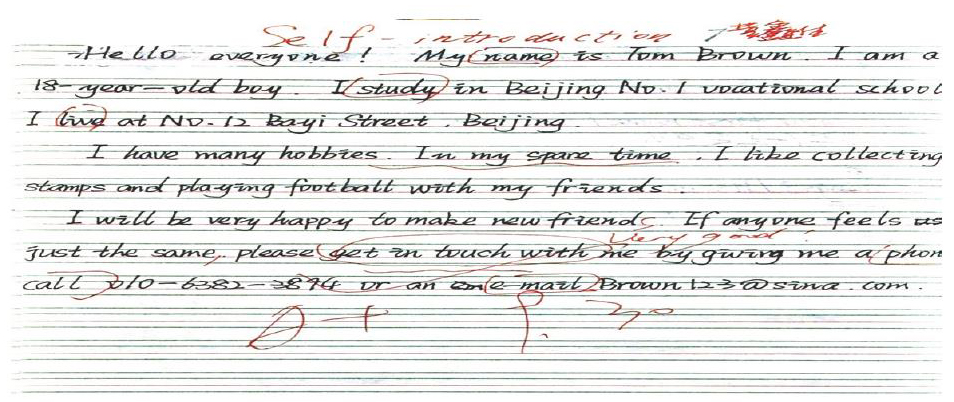 Self-introduction
Hello everyone! My name is Tom Brown. I am a
18-year-old boy. I study in Beijing No.1 vocational school
I live at No.12 Bayi Street, Beijing.
I have many hobbies. In my spare time, I like collecting
stamps and playing football with my friends.
I will be very happy to make new friends. If anyone feels as
Very good!
just the same, please get in touch with me by giving me a phon
call 010-6382-3894 or an e-mail Brown123@sina.com.